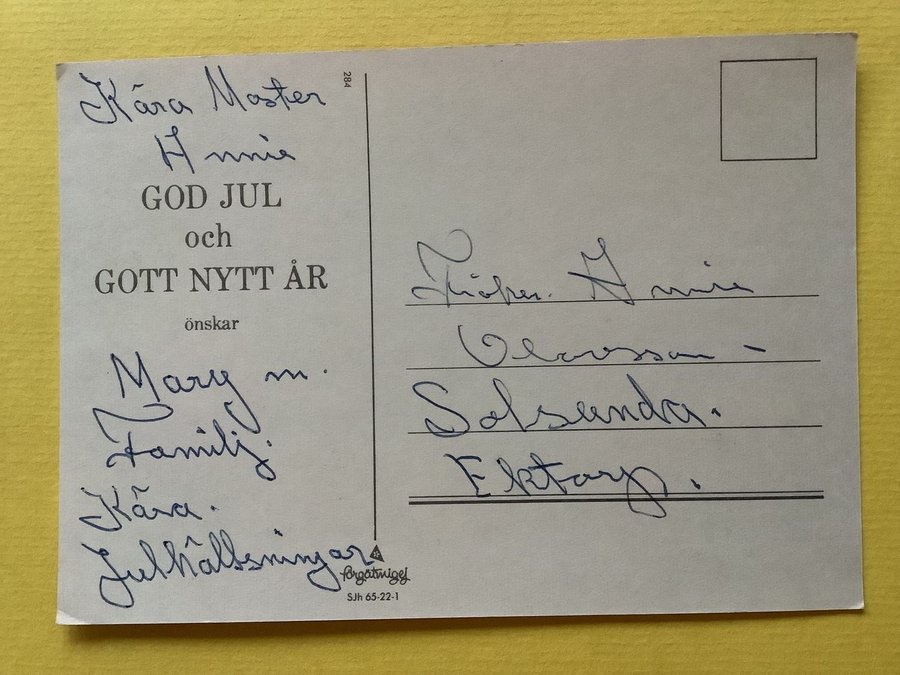 Kära Moster
Annie
GOD JUL
och
GOTT NYTT ÅR
önskar
Mary m.
Familj.
Kära.
Julhälsningar
284
förgätmigej
SJh 65-22-1
Annie
Solsunda.
Ektorp.